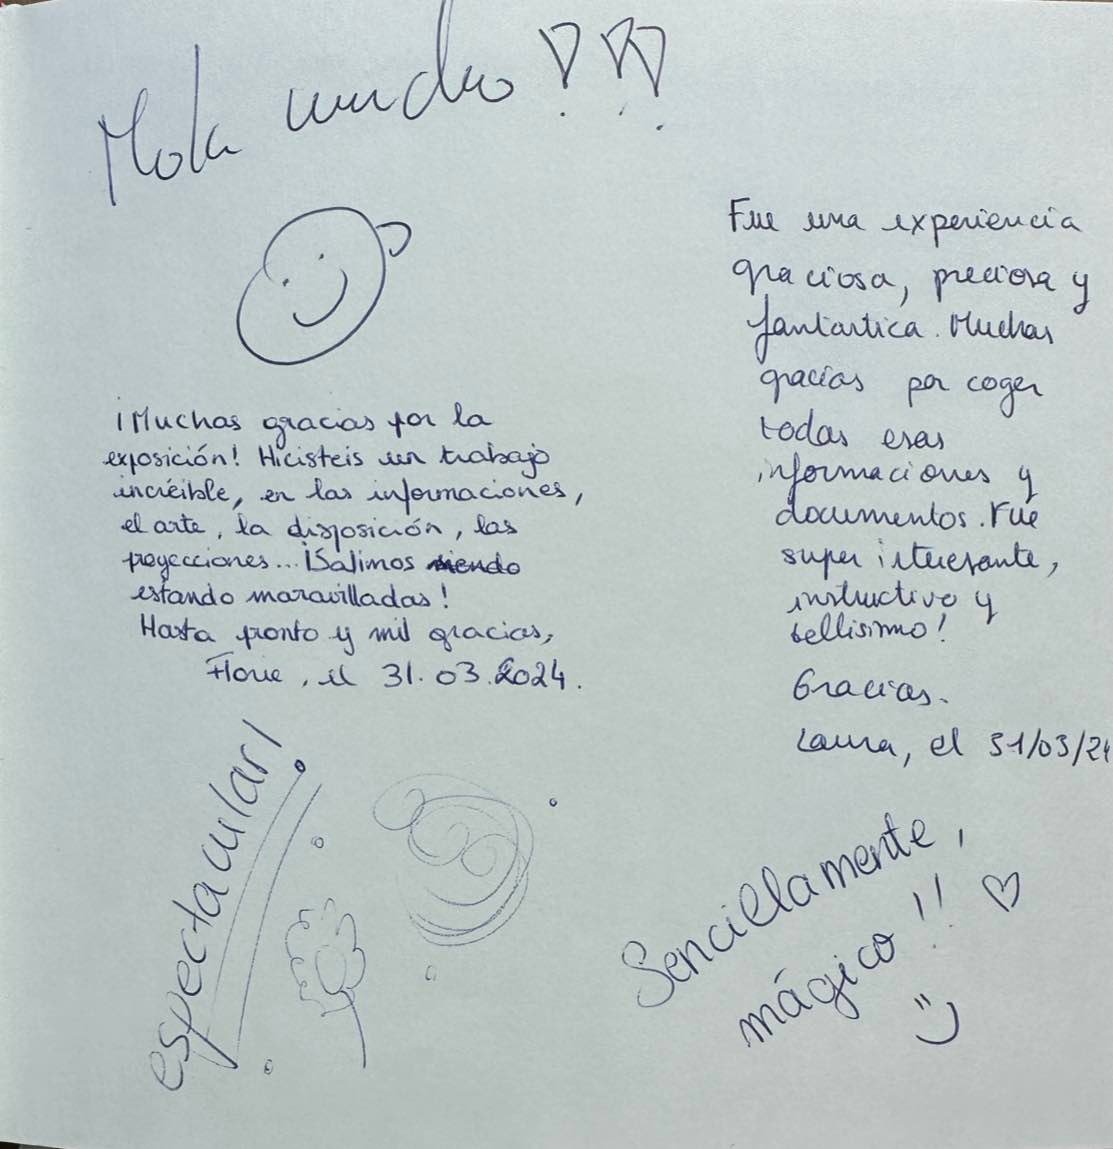 Mola mucho !!!
¡Muchas gracias por la
exposición! Hicisteis un trabajo
increíble, en las informaciones,
el arte, la disposición, las
proyecciones... ¡Salimos
estando maravilladas!
Hasta pronto y mil gracias,
Florie, il 31.03.2024.
Fue una experiencia
graciosa, preciosa y
fantástica. Muchas
gracias por coger
todas esas
informaciones y
documentos. Fue
super interesante,
instructivo y
bellisimo!
Gracias.
Laura, el 31/03/24
espectacular!
Sencillamente,
mágico!! ♡